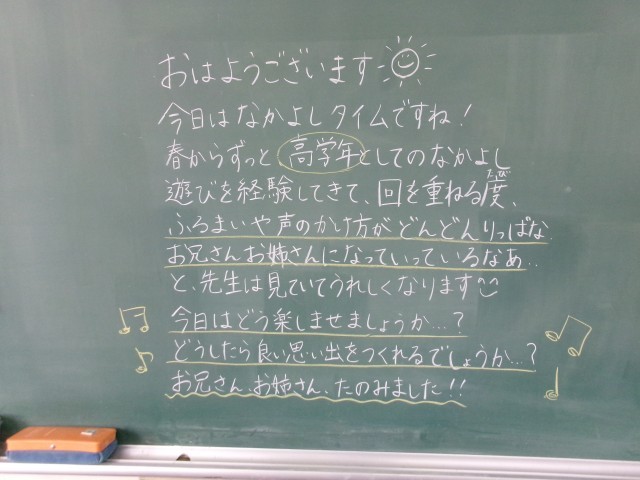 おはようございます
今日はなかよしタイムですね!
春からずっと高学年としてのなかよし
遊びを経験してきて、回を重ねる度、
たび
ふるまいや声のかけ方がどんどんりっぱな
お兄さんお姉さんになっていっているなぁ..
と、先生は見ていてうれしくなります
今日はどう楽しませましょうか…?
どうしたら良い思い出をつくれるでしょうか…?
お兄さん、お姉さん、たのみました!!